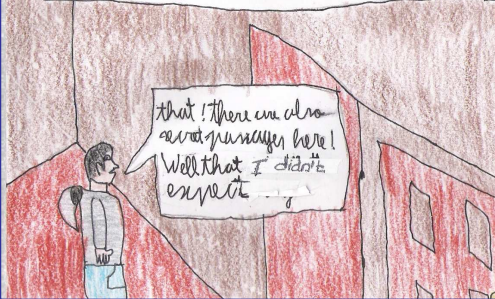 that! there are also
secret passages here!
Well that I didn't
expect